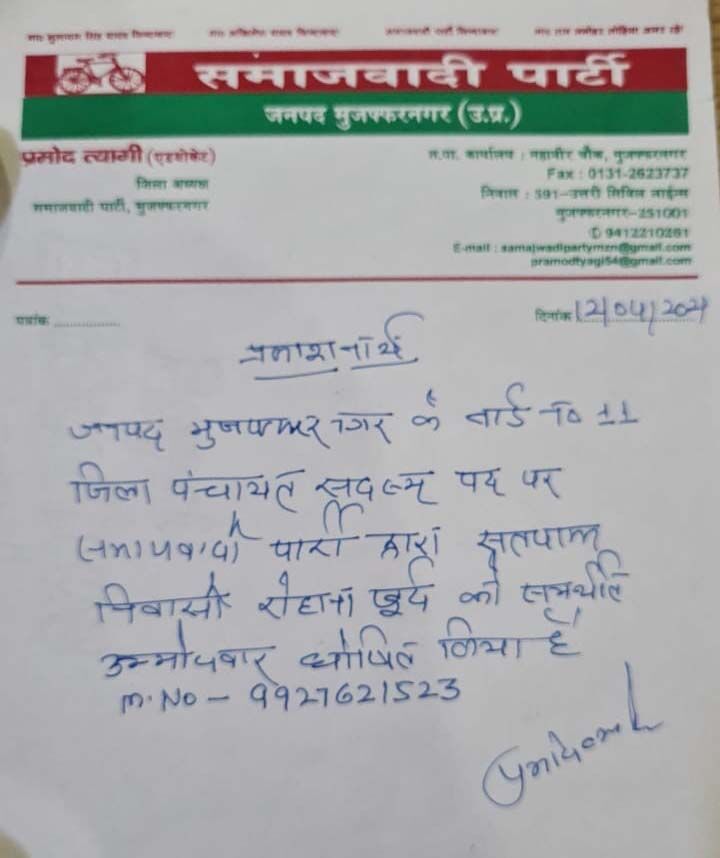 मा० मुलायम सिंह यादव जिन्दाबाद! मा० अखिलेश यादव जिन्दाबाद! समाजवादी पार्टी जिन्दाबाद! डा० राम मनोहर लोहिया अमर रहें!
समाजवादी पार्टी
जनपद मुजफ्फरनगर (उ.प्र.)
प्रमोद त्यागी (एडवोकेट)
जिला अध्यक्ष
समाजवादी पार्टी, मुजफ्फरनगर
स.पा. कार्यालय : महावीर चौक, मुजफ्फरनगर
Fax : 0131-2623737
निवास : 591-उत्तरी सिविल लाईन्स
मुजफ्फरनगर-251001
✆ 9412210281
E-mail : samajwadipartymzn@gmail.com
pramodtyagi54@gmail.com
पत्रांक ..............
दिनांक 12/04/2021
प्रकाशनार्थ
जनपद मुजफ्फरनगर के वार्ड no 11
जिला पंचायत सदस्य पद पर
समाजवादी पार्टी द्वारा सतपाल
निवासी रोहाना खुर्द को समर्थित
उम्मीदवार घोषित किया है
m.No - 9927621523